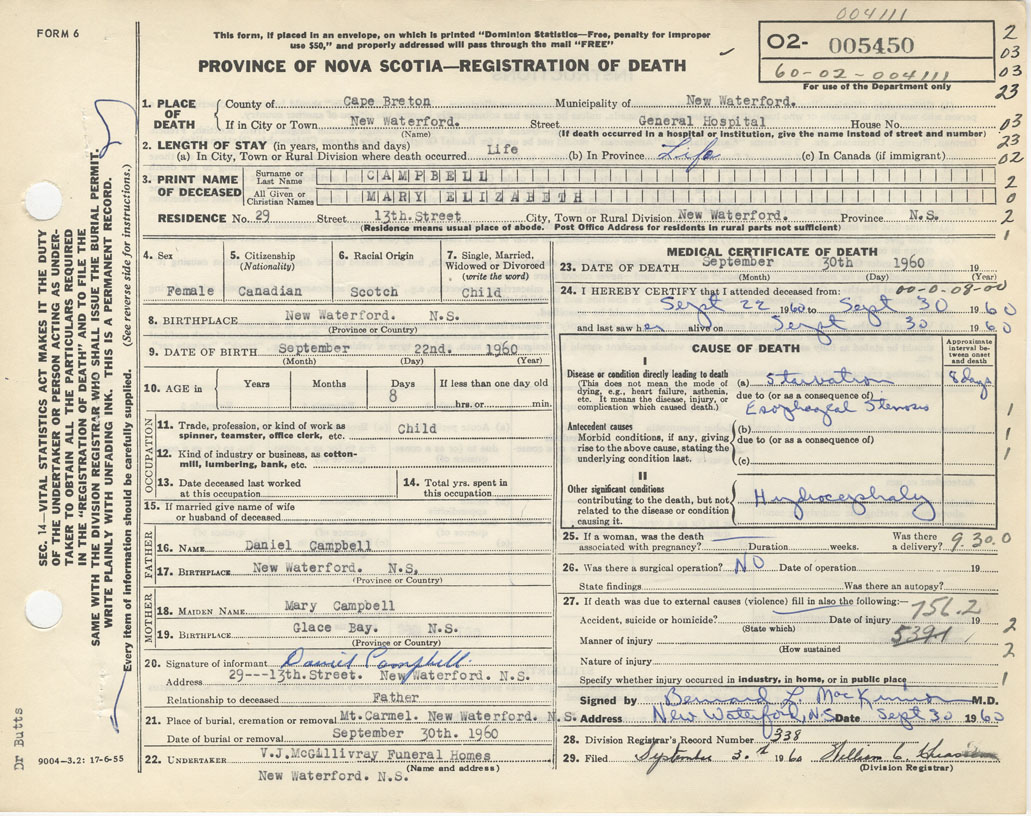 004111
FORM 6
This form, if placed in an envelope, on which is printed "Dominion Statistics—Free, penalty for improper
use $50," and properly addressed will pass through the mail "FREE"
O2- 005450
60-02-004111
For use of the Department only
PROVINCE OF NOVA SCOTIA—REGISTRATION OF DEATH
2
03
03
23
03
23
02
2
0
2
1
1. PLACE OF DEATH
County of Cape Breton Municipality of New Waterford.
If in City or Town New Waterford. Street General Hospital House No.
(Name) (If death occurred in a hospital or institution, give the name instead of street and number)
2. LENGTH OF STAY (in years, months and days)
(a) In City, Town or Rural Division where death occurred Life (b) In Province Life (c) In Canada (if immigrant)
3. PRINT NAME OF DECEASED
Surname or Last Name CAMPBELL
All Given or Christian Names MARY ELIZABETH
RESIDENCE No. 29 Street 13th.Street City, Town or Rural Division New Waterford. Province N.S.
(Residence means usual place of abode. Post Office Address for residents in rural parts not sufficient)
4. Sex
Female
5. Citizenship (Nationality)
Canadian
6. Racial Origin
Scotch
7. Single, Married, Widowed or Divorced (write the word)
Child
8. BIRTHPLACE New Waterford. N.S.
(Province or Country)
9. DATE OF BIRTH September 22nd. 1960
(Month) (Day) (Year)
10. AGE in Years Months Days If less than one day old
8 hrs. or min.
OCCUPATION
11. Trade, profession, or kind of work as
spinner, teamster, office clerk, etc. Child
12. Kind of industry or business, as cotton-
mill, lumbering, bank, etc.
13. Date deceased last worked
at this occupation
14. Total yrs. spent in
this occupation
15. If married give name of wife
or husband of deceased
FATHER
16. NAME Daniel Campbell
17. BIRTHPLACE New Waterford. N.S.
(Province or Country)
MOTHER
18. MAIDEN NAME Mary Campbell
19. BIRTHPLACE Glace Bay. N.S.
(Province or Country)
20. Signature of informant Daniel Campbell.
Address 29---13th.Street. New Waterford. N.S.
Relationship to deceased Father
21. Place of burial, cremation or removal Mt.Carmel. New Waterford. N.S.
Date of burial or removal September 30th. 1960
22. UNDERTAKER V.J.McGillivray Funeral Homes
(Name and address)
New Waterford. N.S.
MEDICAL CERTIFICATE OF DEATH
23. DATE OF DEATH September 30th 1960 19
(Month) (Day) (Year)
24. I HEREBY CERTIFY that I attended deceased from: 00-0-08-00
Sept 22 1960 to Sept 30 1960
and last saw her alive on Sept 30 1960
CAUSE OF DEATH
Approximate interval between onset and death
I
Disease or condition directly leading to death
(This does not mean the mode of
dying, e.g., heart failure, asthenia,
etc. It means the disease, injury, or
complication which caused death.)
(a) Starvation 8 days
due to (or as a consequence of)
Esophageal Stenosis
1
Antecedent causes
Morbid conditions, if any, giving
rise to the above cause, stating the
underlying condition last.
(b)
due to (or as a consequence of)
(c)
1
1
II
Other significant conditions
contributing to the death, but not
related to the disease or condition
causing it.
Hydrocephaly
25. If a woman, was the death
associated with pregnancy? Duration weeks. Was there
a delivery? 9.30.0
26. Was there a surgical operation? NO Date of operation 19
State findings Was there an autopsy?
27. If death was due to external causes (violence) fill in also the following:—
756.2
Accident, suicide or homicide? Date of injury 19 2
(State which)
Manner of injury 5391
(How sustained
2
Nature of injury
Specify whether injury occurred in industry, in home, or in public place 1
Signed by Bernard L. MacKinnon M.D.
Address New Waterford, NS Date Sept 30 1960
28. Division Registrar's Record Number 338
29. Filed September 1960 William C.
(Division Registrar)
SEC. 14—VITAL STATISTICS ACT MAKES IT THE DUTY
OF THE UNDERTAKER OR PERSON ACTING AS UNDER-
TAKER TO OBTAIN ALL THE PARTICULARS REQUIRED
IN THE "REGISTRATION OF DEATH" AND TO FILE THE
SAME WITH THE DIVISION REGISTRAR WHO SHALL ISSUE THE BURIAL PERMIT.
WRITE PLAINLY WITH UNFADING INK. THIS IS A PERMANENT RECORD.
Every item of information should be carefully supplied. (See reverse side for instructions.)
Dr Butts
9004—3.2: 17-6-55